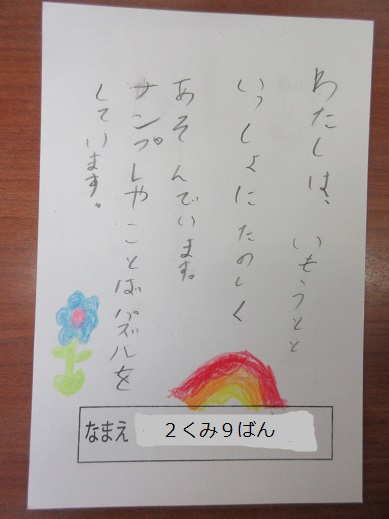 わたしは、いもうとと
いっしょにたのしく
あそんでいます。
ナンプレやことばパズルを
しています。
なまえ ２くみ９ばん